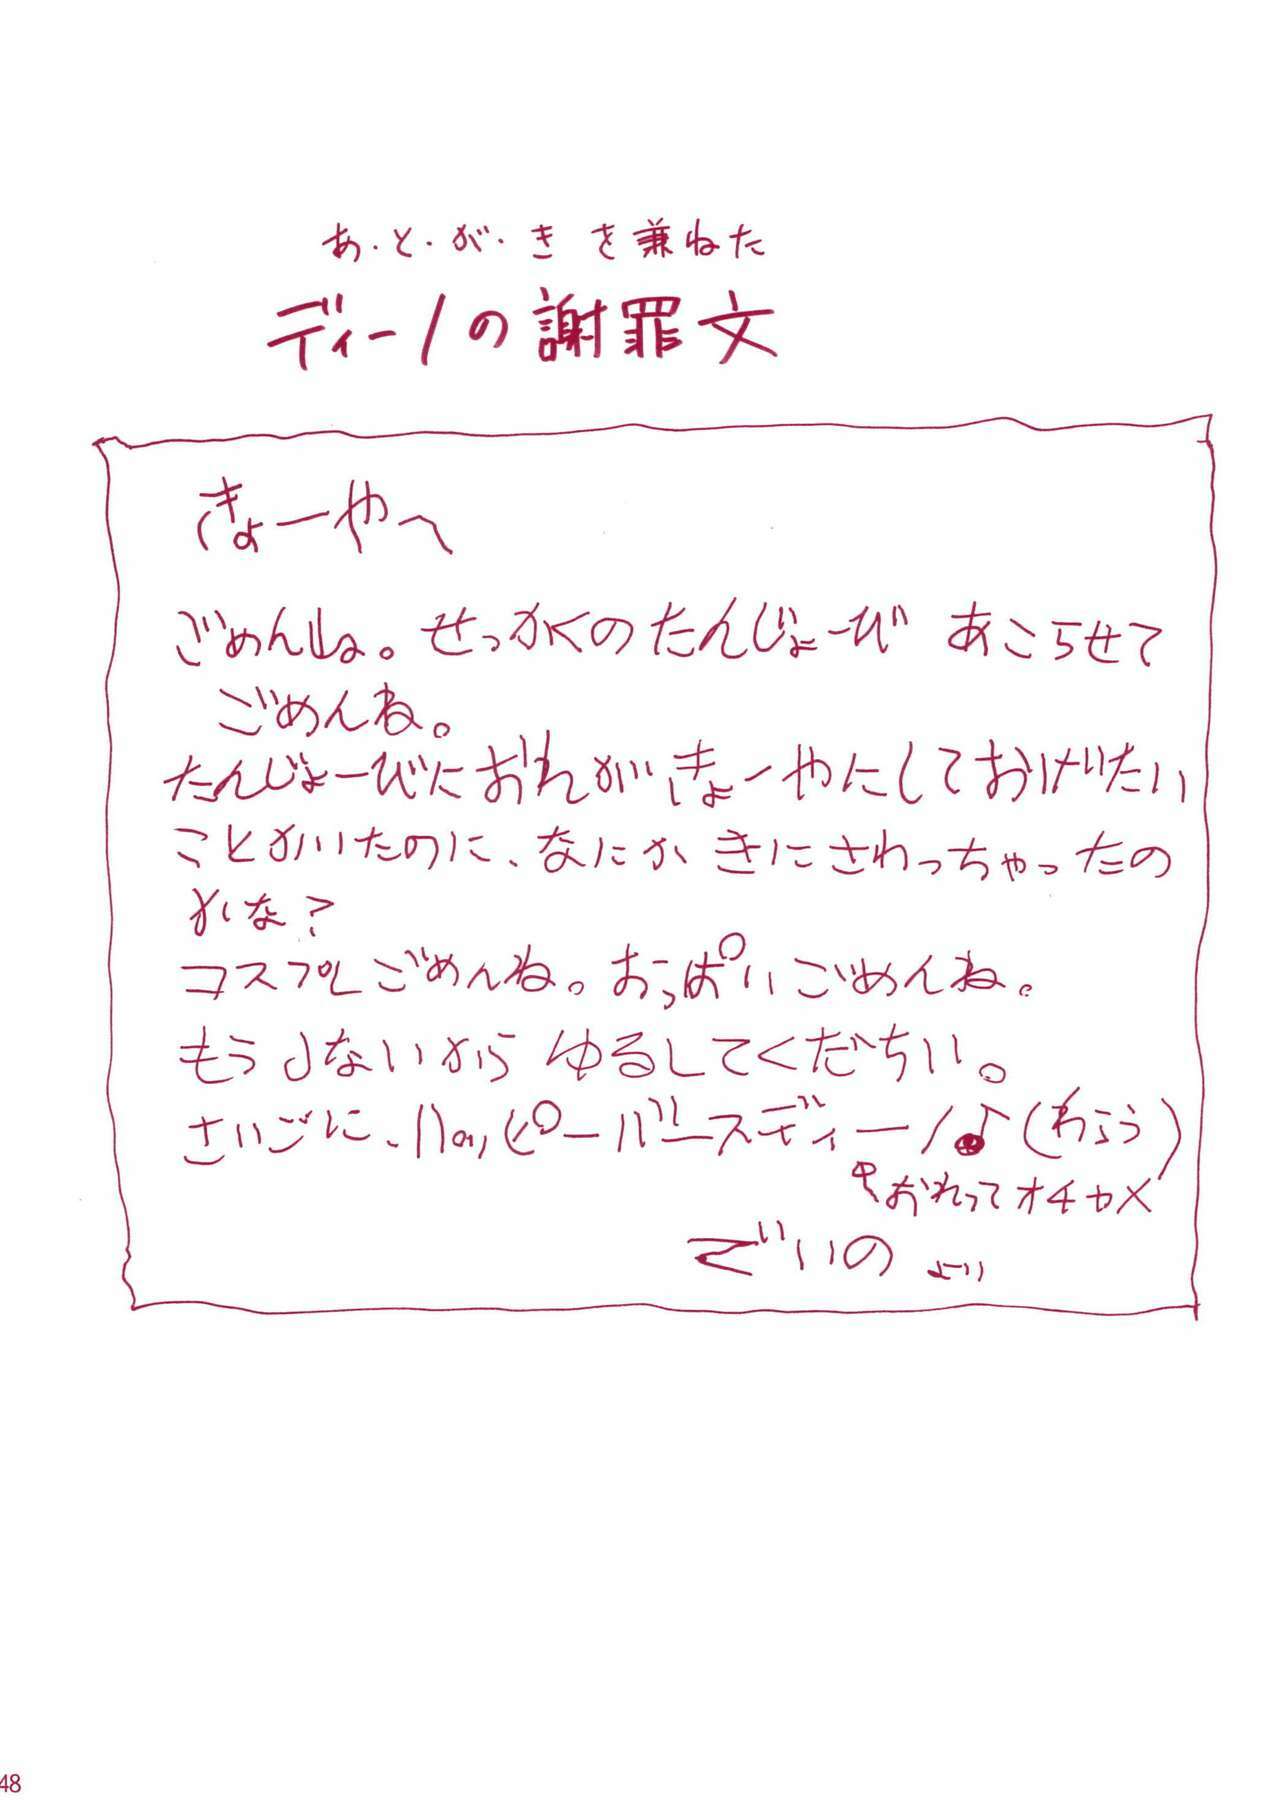 あ・と・が・きを兼ねた
ディーノの謝罪文
きょーやへ
ごめんね。せっかくのたんじょーび あこらせて
ごめんね。
たんじょーびにおれがきょーやにしておげいたい
ことかいたのに、なにか きにさわっちゃったの
かな？
コスプレごめんね。おっぱいごめんね。
もうしないから ゆるしてくだちい。
さいごに、ハッピーバースディーノ♪(わらう)
おれってオチャメ
でいいの より
48